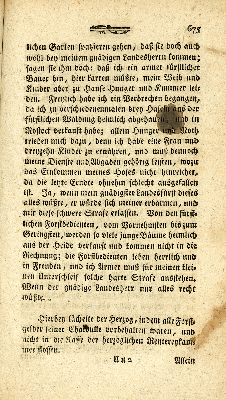 675
lichen Garten spazieren gehen, daß sie doch auch
wohl bey meinem gnädigen Landesherrn kommen;
sagen sie ihm doch: daß ich ein armer fürstlicher
Bauer bin, hier karren müßte, mein Weib und
Kinder aber zu Hause Hunger und Kummer lei-
den. Freylich habe ich ein Verbrechen begangen,
da ich zu verschiedenenmalen dreu aus der
fürstlichen Waldung heimlich abgehauen und in
Rostock verkauft habe; allein Hunger und Noth
trieben mich dazu, denn ich habe eine Frau und
dreyzehn Kinder zu ernähren, und muß dennoch
meine Dienste und Abgaben gehörig leisten, wozu
das Einkommen meines Hofes nicht hinreichet,
da die letzte Erndte ohnehin schlecht ausgefallen
ist. Ja, wenn mein gnädigster Landesfürst dieses
alles wüßte, er würde sich meiner erbarmen, und
mir diese schwere Strafe erlassen. Von den fürst-
lichen Forstbedienten, vom Vornehmsten bis zum
Geringsten, werden so viele junge Bäume heimlich
aus der Heide verkauft und kommen nicht in die
Rechnung; die Forstbedienten leben herrlich und
in Freuden, und ich Armer muß für meinen klei-
nen Unterschleif solche harte Strafe ausstehen.
Wenn der gnädige Landesherr nur alles recht
wüßte,
Hierbey lächelte der Herzog, indem alle Forst-
gelder seiner Chatoulle vorbehalten waren, und
nicht in die Kasse der herzoglichen Rentereykam-
mer flossen.
Uu 2 Allein